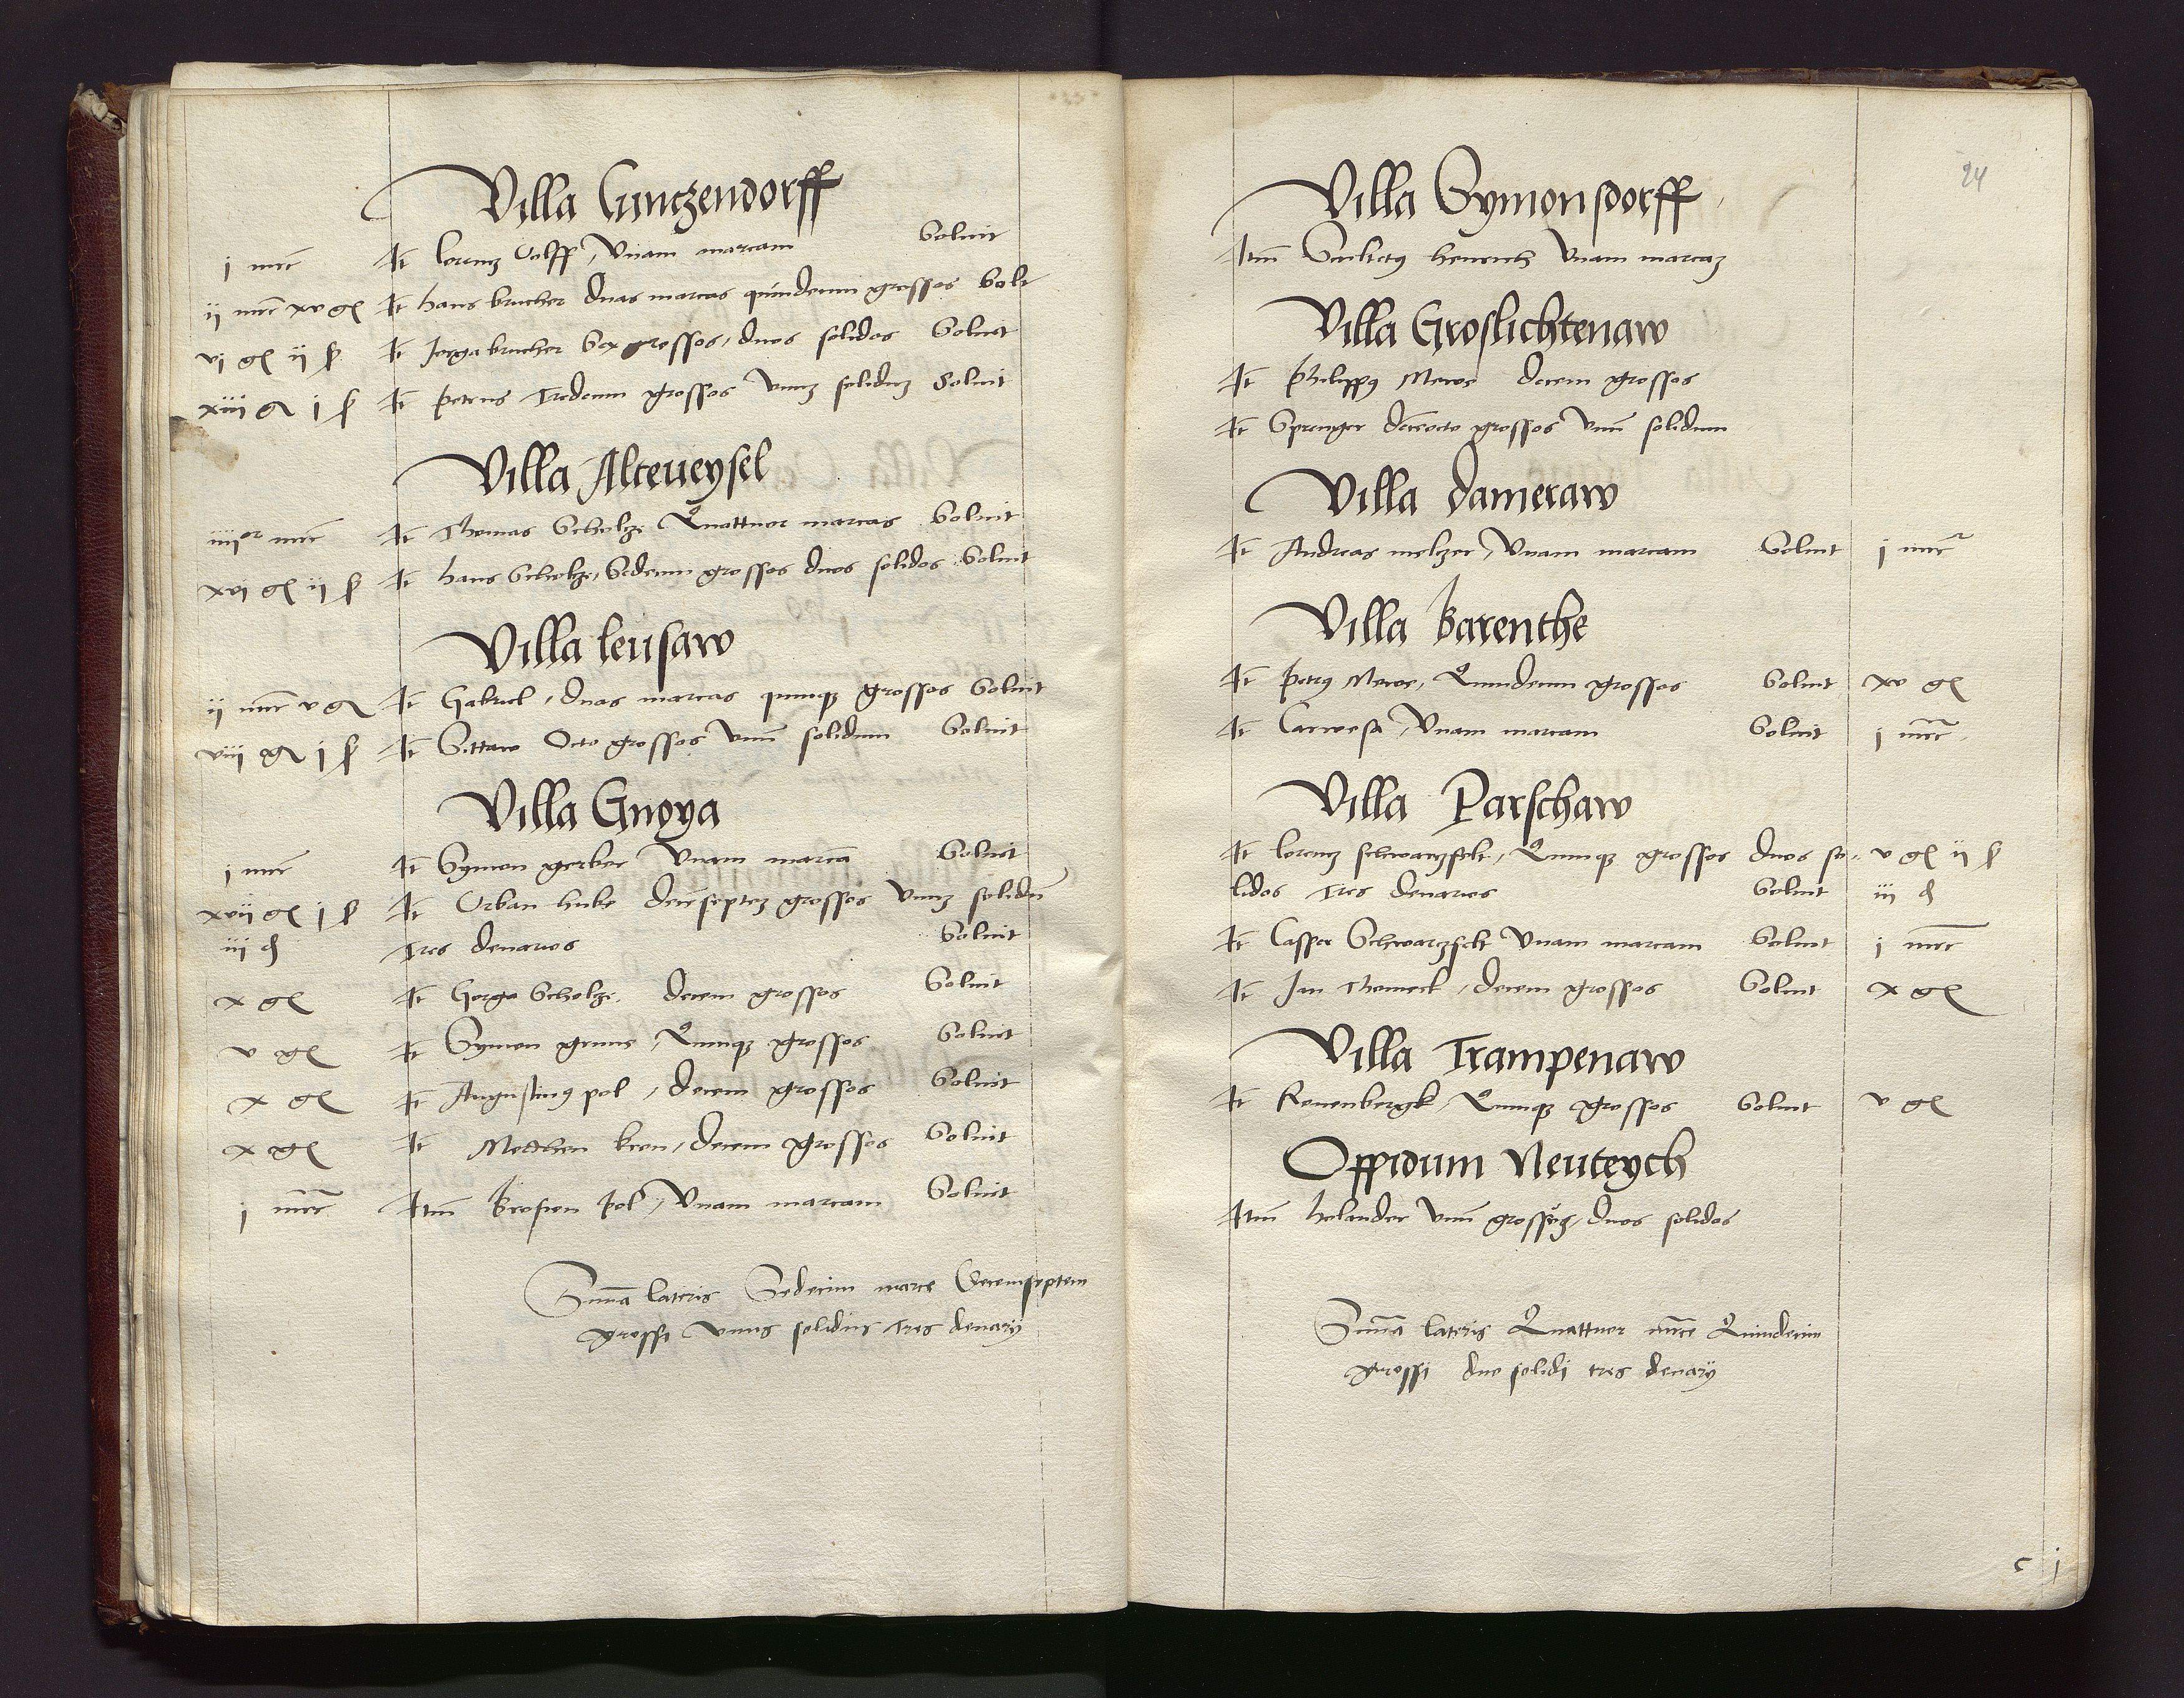 Villa Cuntzendorff
j mrc It Lorentz Volff, Vnam marcam Soluit
ij mrc xv gl It hans krucher duas marcas quindecim grossos Solt
vi gl ij ß It Jorga krucher Sex grossos, duos solidos Soluit
xiij gl j ß It petrus Tredecim grossos vnuz soliduz Soluit
Villa Alteueysel
iiijor mrc It Thomas Scholtze Quattuor marcas Soluit
xvi gl ij ß It hans Scholtze, Sedecim grossos duos solidos Soluit
Villa leusaw
ij mrc v gl It Gabriel, duas marcas quinqz grossos Soluit
viij gl j ß It Sittaw Octo grossos vnu solidum Soluit
Villa Gnoya
j mrc It Symon gerber Vnam marca Soluit
xvij gl j ß It Orban hube deceseptez grossos vnuz solidu
iij d Tres denarios Soluit
x gl It Gorge Scholtze, decem grossos Soluit
v gl It Symon grims, Quinqz grossos Soluit
x gl It Augustin9 pol, decem grossos Soluit
x gl It Metthen kren, decem grossos Soluit
j mrc Itm Brosien Pol, Vnam marcam Soluit
Suma lateris Sedecim marce Decemseptem
grossi vnus solidus tres denarij
24
Villa Symonsdorff
Itm Scultet9 henrich Vnam marcaz
Villa Groslichtenaw
It Philipp9 Mewe decem grossos
It Sprenger deceocto grossos vnu solidum
Villa dameraw
It Andreas meltzer, Vnam marcam Soluit j mrc
Villa Barenthe
It Petr9 Mewe, Quindecim grossos Soluit xv gl
It Carwesa, Vnam marcam Soluit j mrc
Villa Parschaw
It Lorentz schwartzfelt, Quinqz grossos duos so= v gl ij ß
lidos Tres denarios Soluit iij d
It Casper Schwartzfelt Vnam marcam Soluit j mrc
It Jan Themerk, decem grossos Soluit x gl
Villa Trampenaw
It Reuenbergk, Quinqz grossos Soluit v gl
Oppidum Neuteych
Itm holander vnu grossuz, duos solidos
Suma lateris Quattuor mrce Quindecim
grossi duo solidi tres denarij
c j